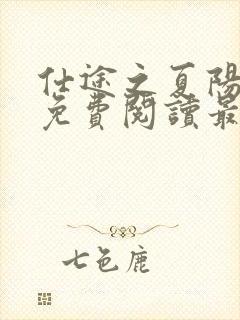 仕途之夏陽
免費閱讀最
七色鹿